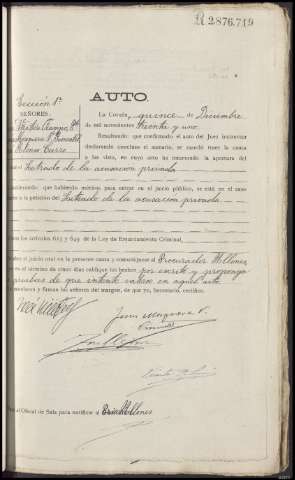 R 2.876.719
AUTO.
Sección 1ª
SEÑORES:
La Coruña, quince de Diciembre
de mil novecientos treinta y uno.
Resultando: que confirmado el auto del Juez instructor
declarando concluso el sumario, se mandó traer la causa
a la vista, en cuyo acto ha interesado la apertura del
letrado de la acusación privada
Considerando: que habiendo méritos para entrar en el juicio público, se está en el caso
a la petición del letrado de la acusación privada
los artículos 632 y 649 de la Ley de Enjuiciamiento Criminal,
el juicio oral en la presente causa y comuníquese al Procurador
en el término de cinco días califique los hechos por escrito y proponga
pruebas de que intente valerse en aquel acto
mandaron y firman los señores del margen, de que yo, Secretario, certifico.
al Oficial de Sala para notificar al